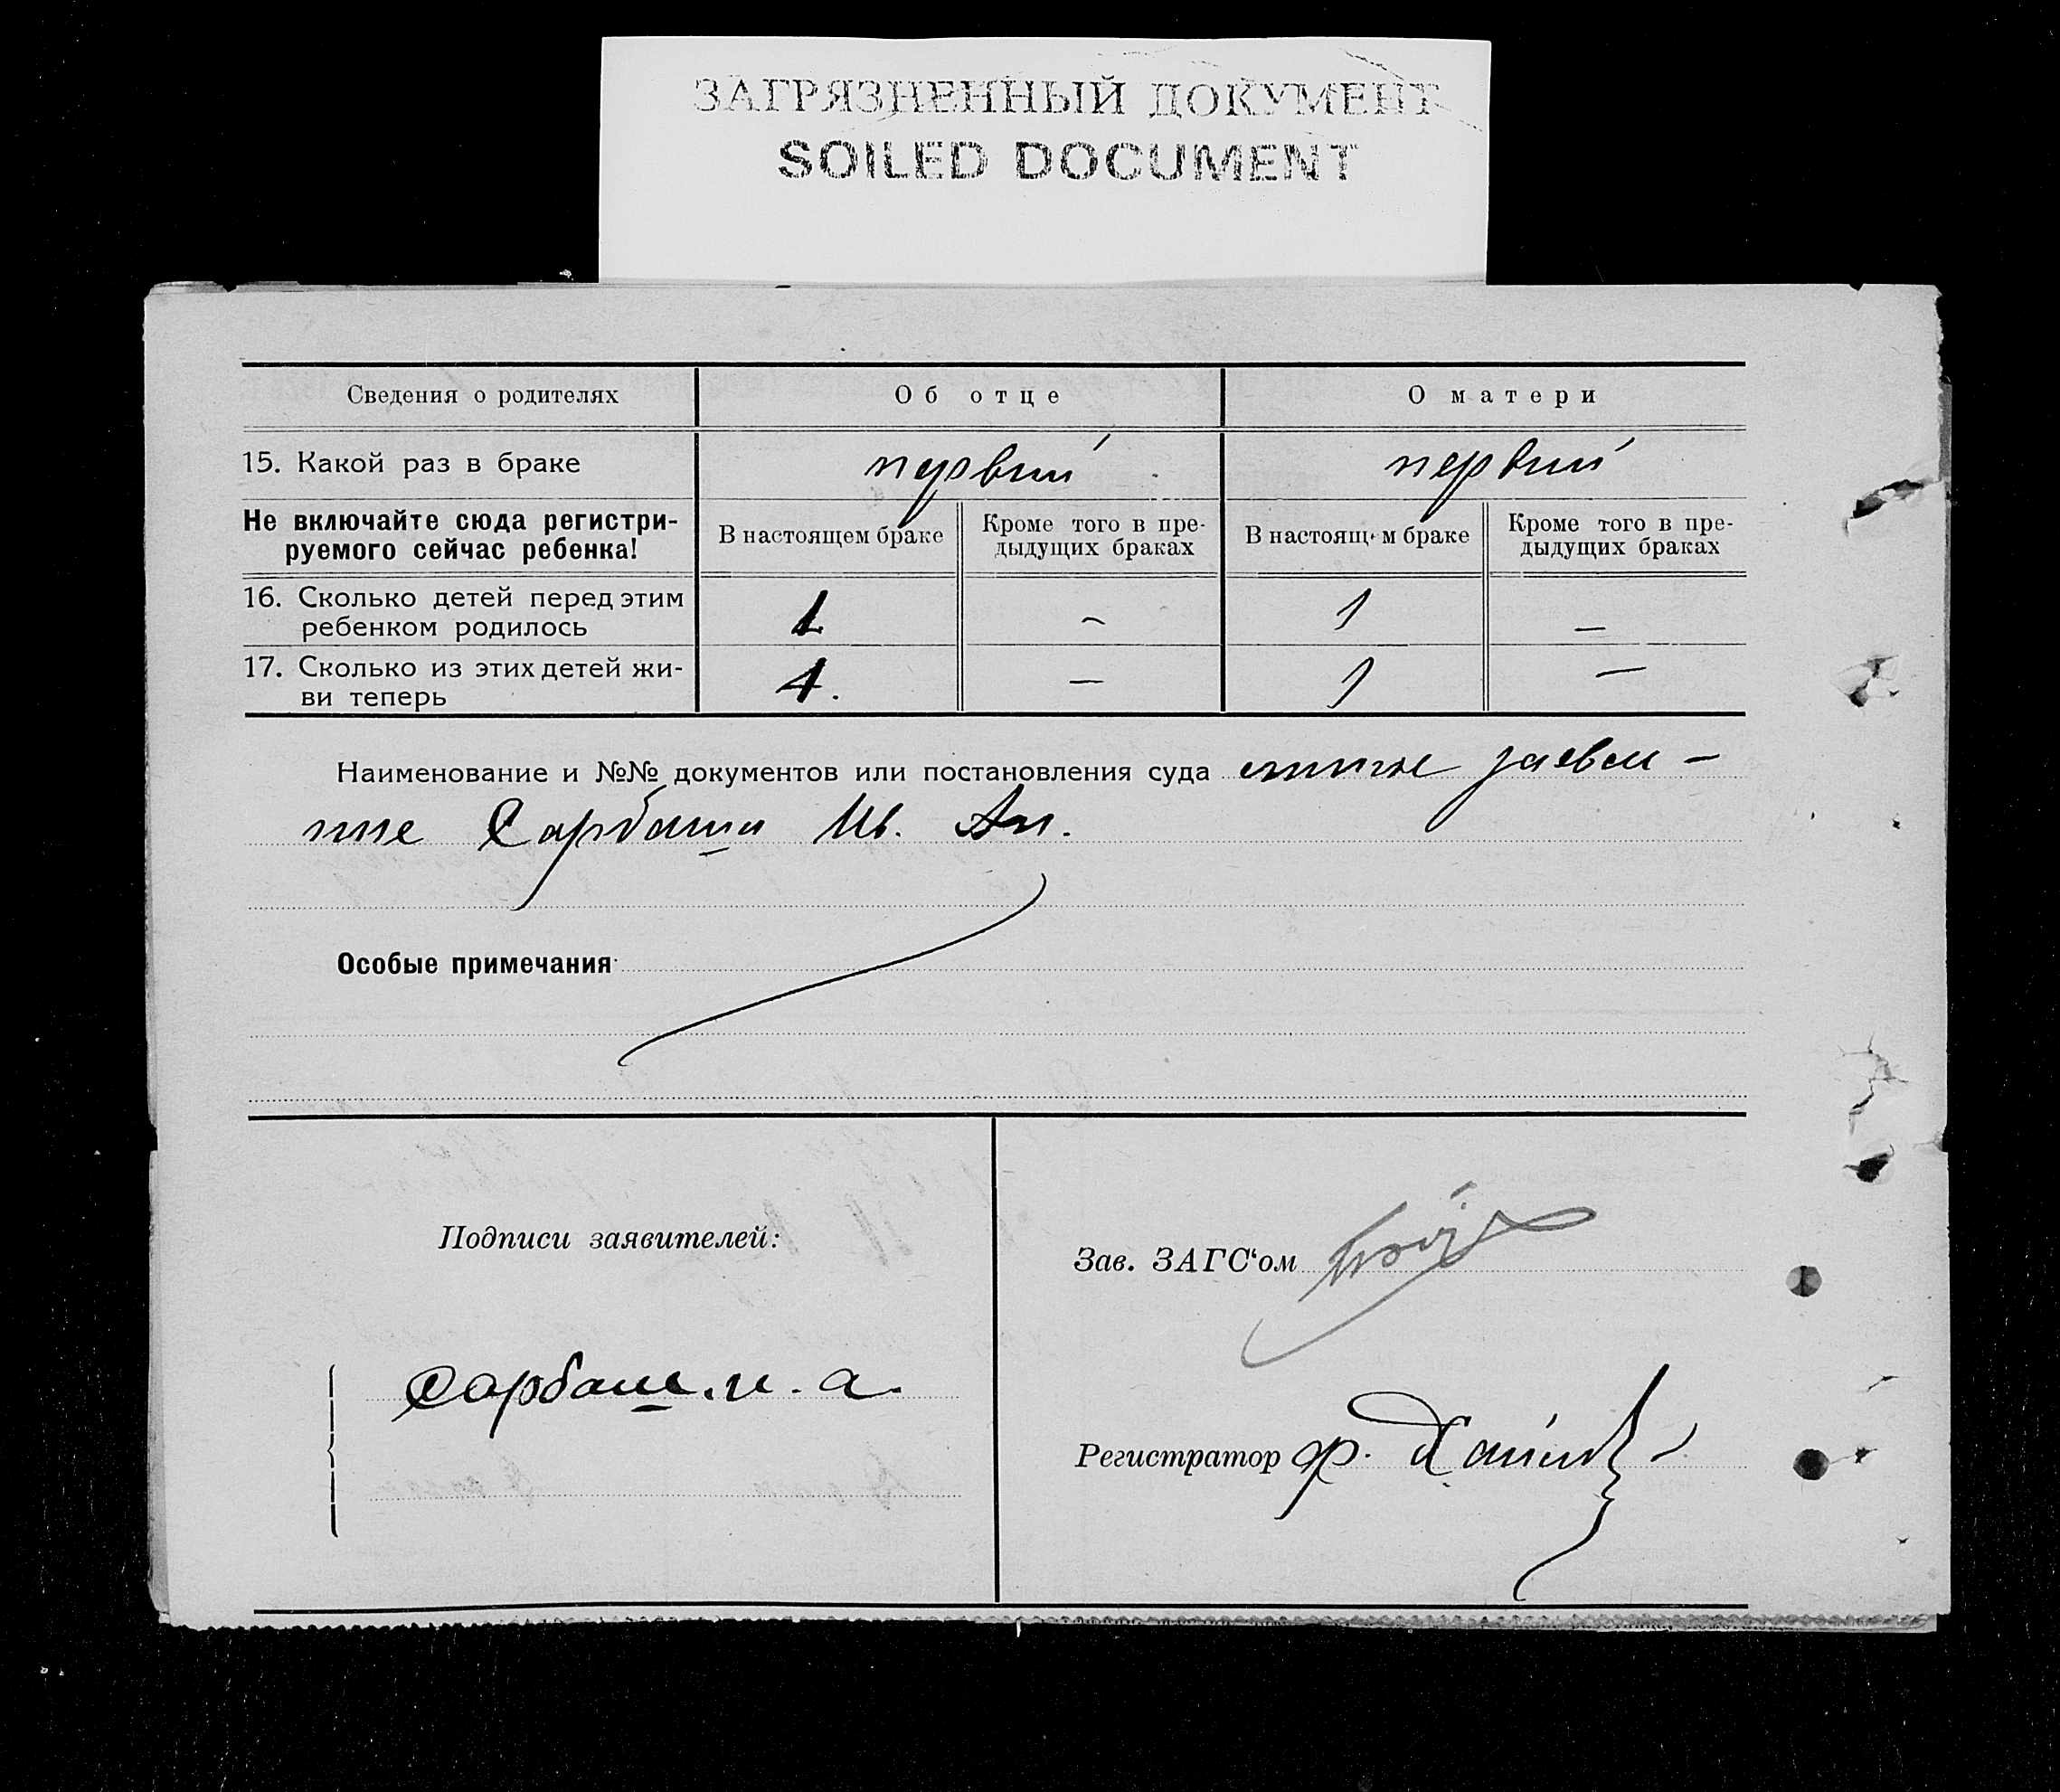 ЗАГРЯЗНЕННЫЙ ДОКУМЕНТ
SOILED DOCUMENT
Сведения о родителях
Об отце
О матери
15. Какой раз в браке
первый
первый
Не включайте сюда регистри-
руемого сейчас ребенка!
В настоящем браке
Кроме того в пре-
дыдущих браках
В настоящем браке
Кроме того в пре-
дыдущих браках
16. Сколько детей перед этим
ребенком родилось
1
–
1
–
17. Сколько из этих детей жи-
ви теперь
1.
–
1
–
Наименование и №№ документов или постановления суда личное заявле-
ние Сарбаша Ив. Ан.
Особые примечания
Подписи заявителей:
Зав. ЗАГС‘ом
Сарбаш. и. а.
Регистратор Ф.